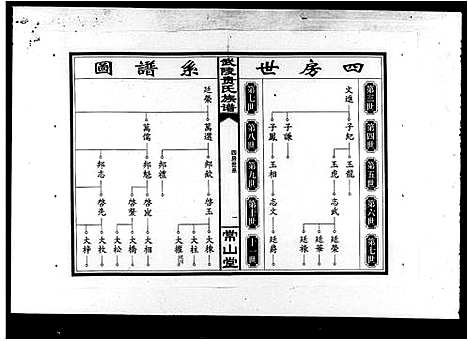 四房世系譜圖
第三世
第四世
第五世
第六世
第七世
文達
子紀
子謙
子鳳
玉龍
玉虎
玉相
志武
志文
廷榮
廷華
廷祿
廷爵
武陵貴氏族譜
四房世系
一
常山堂
第七世
第八世
第九世
第十世
十一世
廷榮
萬選
萬儒
邦歆
邦禮
邦魁
邦志
啓玉
啓先
大棟
大柱
大權
大相
大橋
大松
大枚
大梓